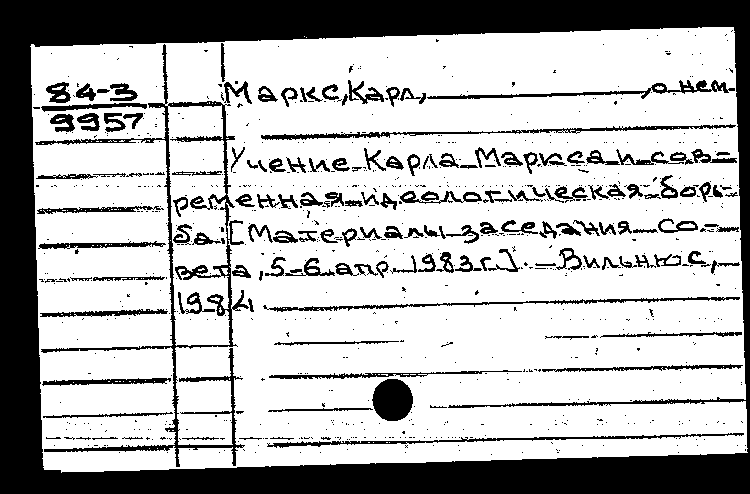 84-3
9957
Маркс, Карл, о нем
Учение Карла Маркса и сов-
ременная идеологическая борь-
ба: [Материалы заседания со-
вета, 5-6 апр. 1983 г.]. – Вильнюс,
1984.